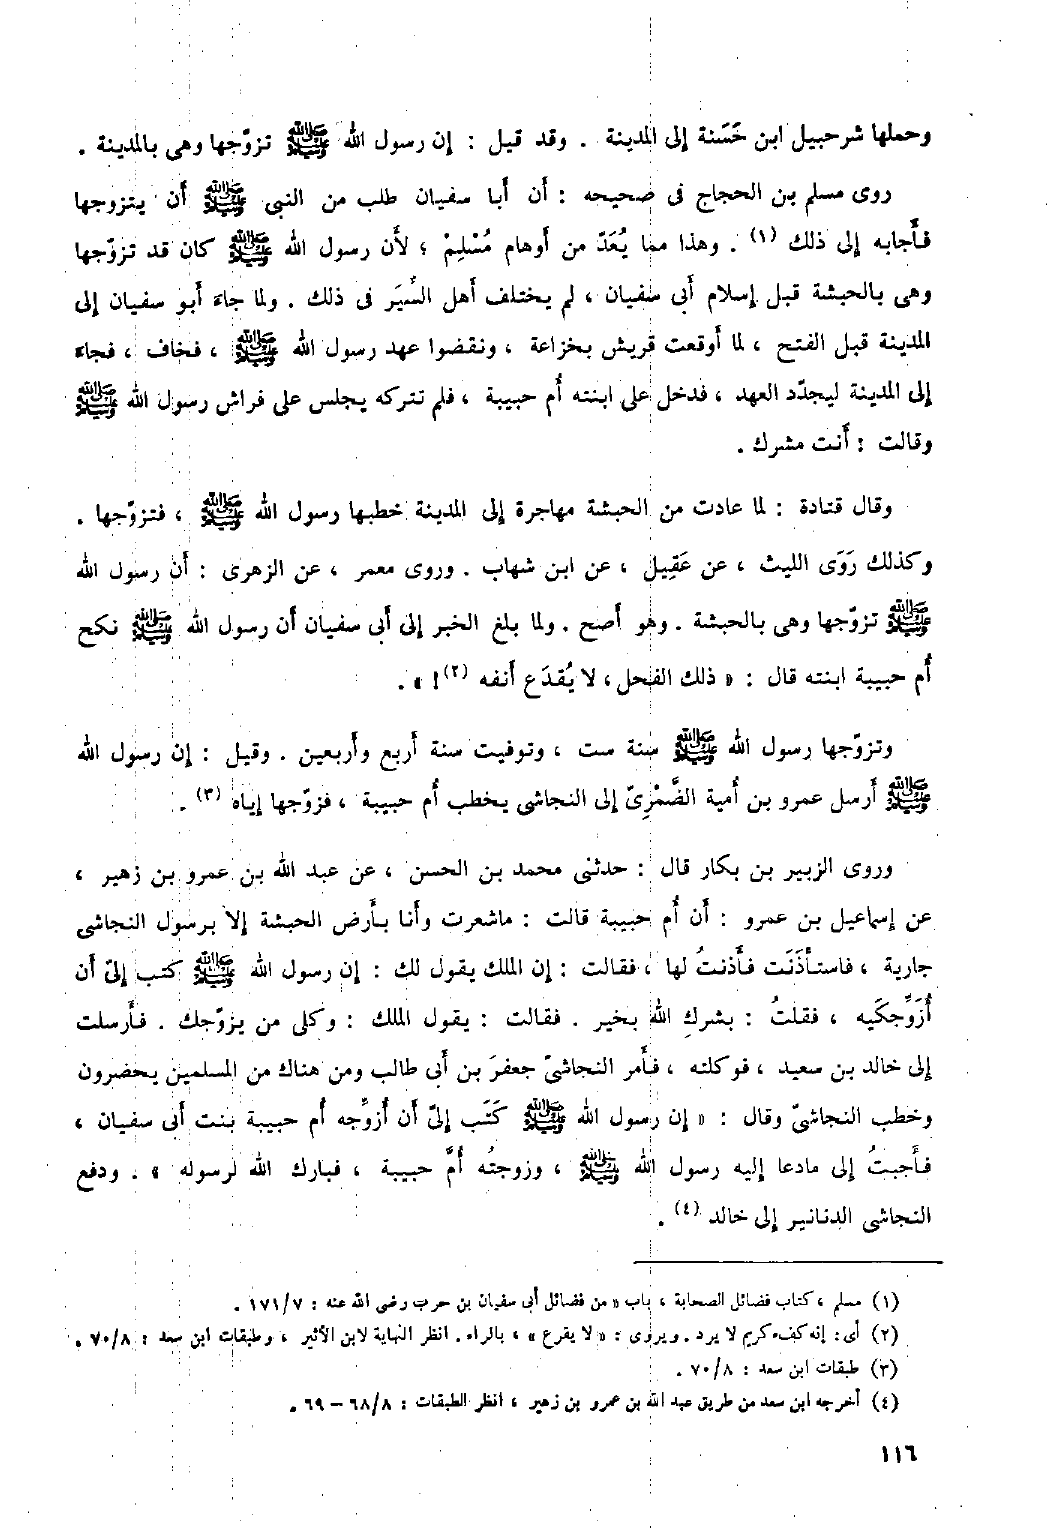 وحملها شرحبيل ابن حَسَنة إلى المدينة . وقد قيل : إن رسول الله ﷺ تزوّجها وهى بالمدينة .
روى مسلم بن الحجاج فى صحيحه : أن أبا سفيان طلب من النبى ﷺ أن يتزوجها
فأجابه إلى ذلك (١) . وهذا مما يُعَدّ من أوهام مُسْلِمْ ؛ لأن رسول الله ﷺ كان قد تزوّجها
وهى بالحبشة قبل إسلام أبى سفيان ، لم يختلف أهل السِّيَر فى ذلك . ولما جاءَ أبو سفيان إلى
المدينة قبل الفتح ، لما أوقعت قريش بخزاعة ، ونقضوا عهد رسول الله ﷺ ، فخاف ، فجاءَ
إلى المدينة ليجدّد العهد ، فدخل على ابنته أُم حبيبة ، فلم تتركه يجلس على فراش رسول الله ﷺ
وقالت : أَنت مشرك .
وقال قتادة : لما عادت من الحبشة مهاجرة إلى المدينة خطبها رسول الله ﷺ ، فتزوّجها .
وكذلك رَوَى الليث ، عن عَقِيل ، عن ابن شهاب . وروى معمر ، عن الزهرى : أَن رسول الله
ﷺ تزوّجها وهى بالحبشة . وهو أصح . ولما بلغ الخبر إلى أبى سفيان أن رسول الله ﷺ نكح
أُم حبيبة ابنته قال : « ذلك الفحل ، لا يُقدَع أَنفه (٢) ! » .
وتزوّجها رسول الله ﷺ سنة ست ، وتوفيت سنة أربع وأربعين . وقيل : إن رسول الله
ﷺ أَرسل عمرو بن أُمية الضَّمْرِىّ إلى النجاشى يخطب أُم حبيبة ، فزوّجها إياه (٣) .
وروى الزبير بن بكار قال : حدثنى محمد بن الحسن ، عن عبد الله بن عمرو بن زهير ،
عن إسماعيل بن عمرو : أَن أُم حبيبة قالت : ماشعرت وأنا بأَرض الحبشة إلا برسول النجاشى
جارية ، فاستأذَنَت فأَذنتُ لها ، فقالت : إن الملك يقول لك : إن رسول الله ﷺ كتب إلىّ أن
أُزَوِّجكَيه ، فقلتُ : بشركِ الله بخير . فقالت : يقول الملك : وكلى من يزوّجك . فأَرسلت
إلى خالد بن سعيد ، فوكلته ، فأَمر النجاشىّ جعفرَ بن أبى طالب ومن هناك من المسلمين يحضرون
وخطب النجاشىّ وقال : « إن رسول الله ﷺ كَتَب إلىّ أن أُزوِّجه أُم حبيبة بنت أبى سفيان ،
فأَجبتُ إلى مادعا إليه رسول الله ﷺ ، وزوجتُه أُمَّ حبيبة ، فبارك الله لرسوله » . ودفع
النجاشى الدنانير إلى خالد (٤) .
(١) مسلم ، كتاب فضائل الصحابة ، باب « من فضائل أبى سفيان بن حرب رضى الله عنه : ١٧١/٧ .
(٢) أى : إنه كفء كريم لا يرد . ويروى : « لا يقرع » ، بالراء . انظر النهاية لابن الأثير ، وطبقات ابن سعد : ٧٠/٨ .
(٣) طبقات ابن سعد : ٧٠/٨ .
(٤) أخرجه ابن سعد من طريق عبد الله بن عمرو بن زهير ، انظر الطبقات : ٦٨/٨ – ٦٩ .
١١٦